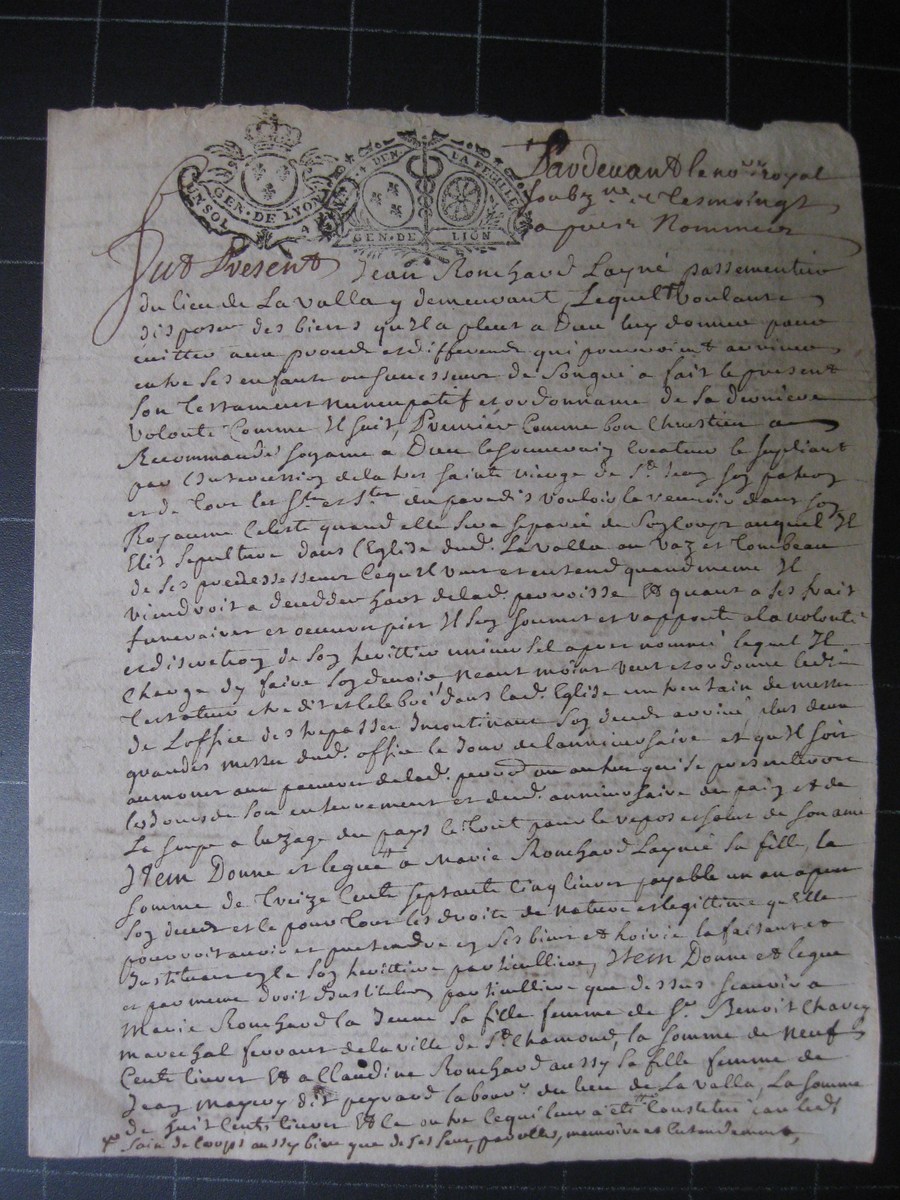 UN SOL
GEN · DE LYON
DEN LA FEUILLE
GEN · DE LION
Pardevant le no.re royal
soubz.né et tesmoingt
apres Nommes
fut Present Jean Ronchard Layné passementier
du lieu de La valla y demeurant, Lequel voulant
disposer des biens qu'il a pleut a Dieu luy donner pour
euitter aux proces et differend qui pourroint arriuer
entre ses enfants ou successeur de Son gré a fait le present
son testament nuncupatif et ordonnance de sa derniere
volonté Comme Il suit, Premier Comme bon Chrestien a
Recommandé son ame a Dieu le souuerain Createur le supliant
par l'Intercession de la tres sainte vierge de St Jean son patron
et de tous les Sts et Stes du paradis vouloir la receuoir dans son
Royaume Celeste quand elle sera separée de son Corps auquel Il
Elit sepulture dans l'Eglise dud. La valla au vaz et tombeau
de ses predessesseur Ce qu'il veut et entend quand meme Il
viendroit a decedder hors de lad. parroisse Et quant a ses frait
funeraires et oeuures pies Il s'en soumet et rapporte a la volonté
et discretion de son herittier uniuersel apres nommé lequel Il
Charge d'y faire son deuoir Neant moins veut et ordonne led.
testateur etre dit et Celebré dans lad. Eglise un trentain de messes
de L'office des trepasses Incontinant son deces arriué, plus deux
grandes messes dud. office le Jour de l'anniuersaire et qu'il soit
aumoné aux pauures de lad. parroisse ou autres qui se presenteront
les Jours de Son enterrement et dud. anniuersaire du pain et de
La soupe a l'uzage du pays le tout pour le repos et salut de son ame
Item Donne et legue a Marie Ronchard Laynée sa fille, la
somme de treize Cents septante Cinq liures payable un an apres
son deces et le pour tous les droits de Nature et legittime qu'Elle
pourroit auoir et pretendre en ses biens et hoirie la faisant et
Instituant en Ce son herittiere particulliere, Item Donne et legue
et par meme droit d'Institution particulliere que dessus scauoir a
Marie Ronchard la Jeune sa fille femme de Sr. Benoit Chavey
marechal ferrant de la ville de St Chamond, la somme de Neuf
Cents liures Et a Claudine Ronchard aussy sa fille femme de
Jean dit peyrard labour. du lieu de La valla, La somme
de huit Cents liures Et Ce outre Ce qu'il leur a eté Constitué
sain de Corps aussy bien que de ses sens, parolles, memoire et Entendement,